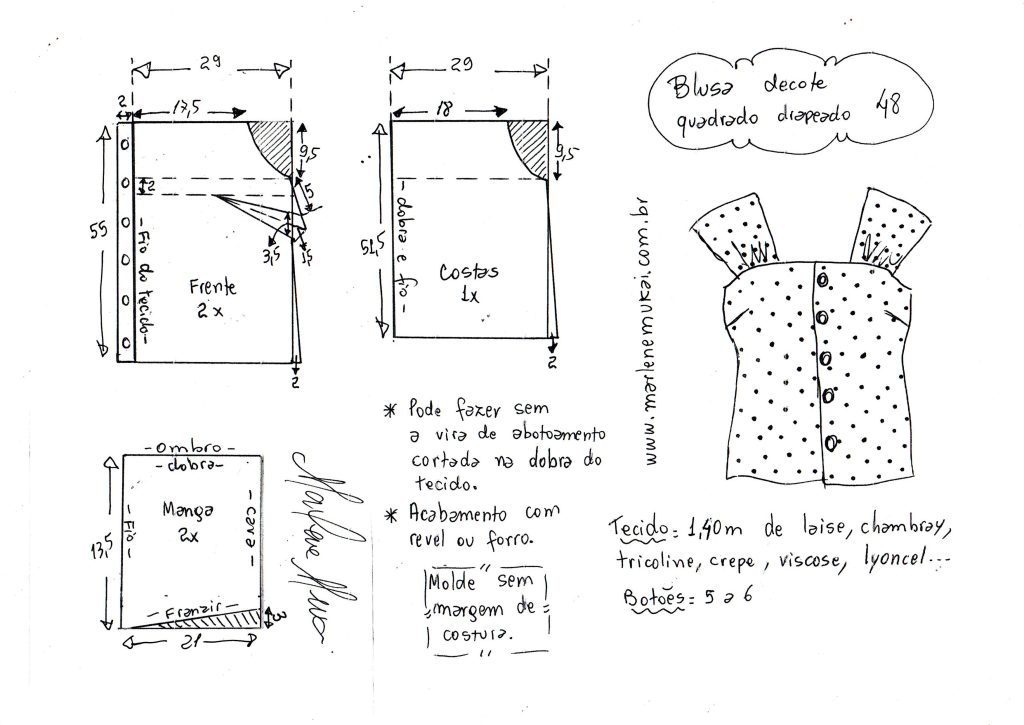 29
2
17,5
9,5
55
2
5
3,5
1,5
- Fio do tecido -
Frente
2x
2
29
18
9,5
51,5
- dobra e fio -
Costas
1x
2
Blusa decote
quadrado drapeado 48
www.marlenemukai.com.br
- ombro -
- dobra -
Manga
2x
- Fio -
- cava -
13,5
- Franzir -
3
21
Marlene Mukai
* Pode fazer sem
a vira de abotoamento
cortada na dobra do
tecido.
* Acabamento com
revel ou forro.
Molde sem
margem de
costura.
Tecido = 1,40m de laise, chambray,
tricoline, crepe, viscose, lyoncel...
Botões = 5 a 6